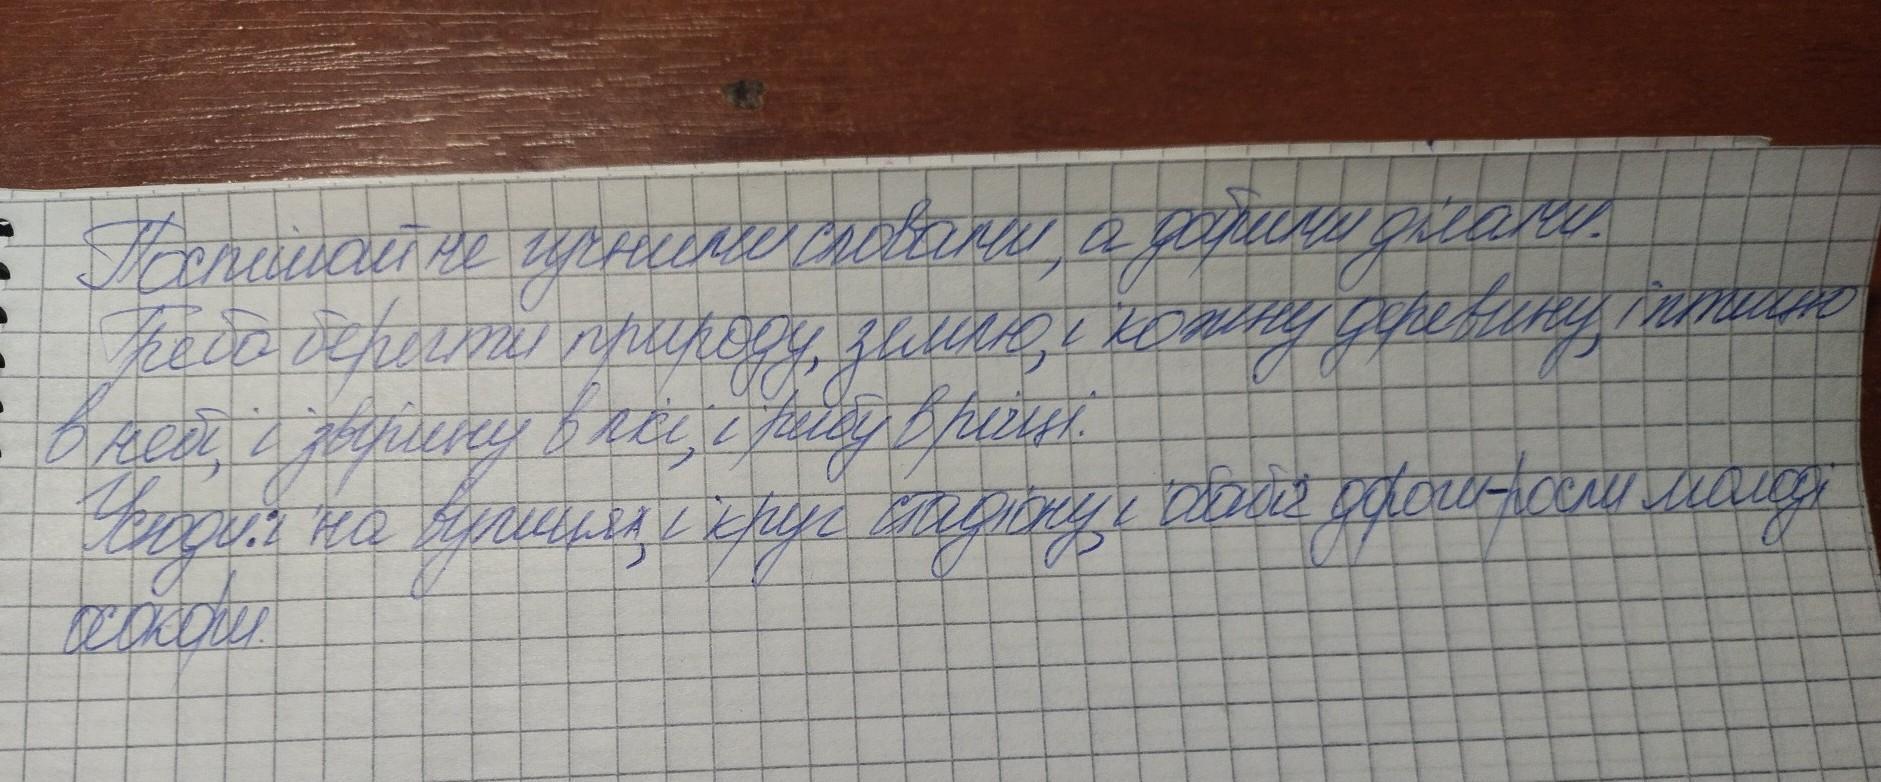 Поспішай не гучними словами, а добрими ділами.
Треба берегти природу, землю, і кожну деревину, і птицю
в небі, і звірину в лісі, і рибу в річці.
Усюди: і на вулицях, і круг стадіону, і обабіч дороги-росли молоді
осокори.